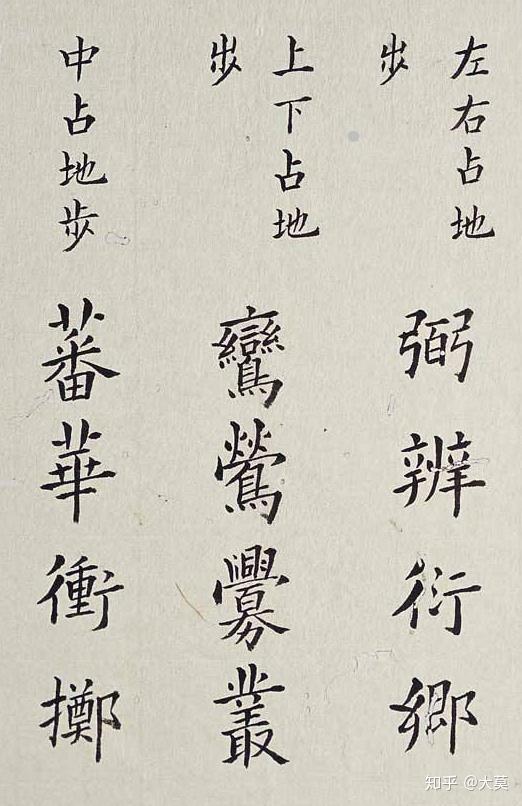 左右占地
步
弼辨衍鄉
上下占地
步
鸞鶯釁叢
中占地步
蕃華衝擲
知乎 @大莫